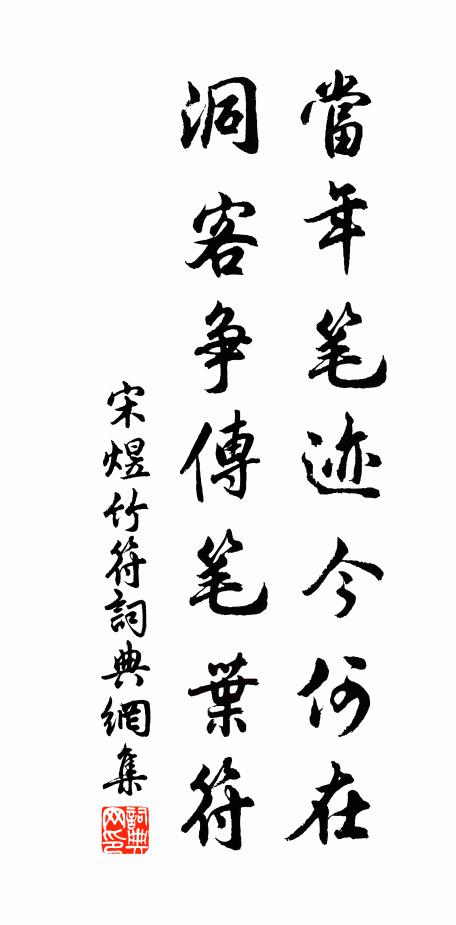 當年笔迹今何在
洞客争傳笔葉符
宋煜竹符詞典網集
詞典网印